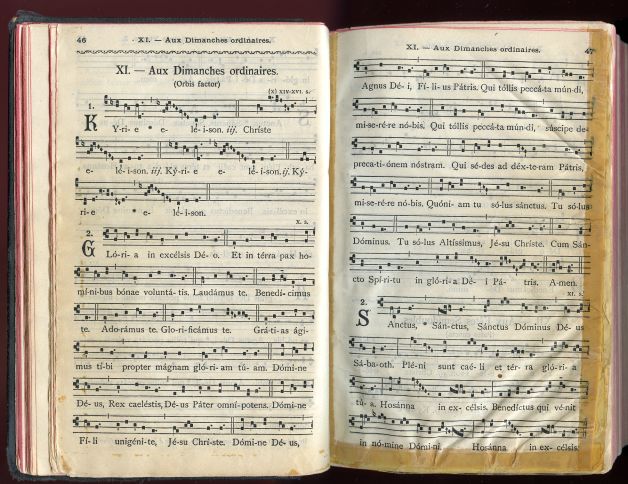 46 XI. — Aux Dimanches ordinaires.
XI. — Aux Dimanches ordinaires.
(Orbis factor)
(X) XIV-XVI. s.
1.
K Y-ri- e * e- lé- i-son. iij. Christe
e- lé- i-son. iij. Ký-ri- e e- lé- i-son. ij. Ký-
ri- e * e- lé- i-son.
X. s.
2.
G Ló-ri- a in excélsis Dé- o. Et in térra pax ho-
mí-ni-bus bónae voluntá- tis. Laudámus te. Benedí- cimus
te. Ado-rámus te. Glo-ri-ficámus te. Grá-ti- as ági-
mus tí-bi propter mágnam gló-ri- am tú- am. Dómi-ne
Dé- us, Rex caeléstis, Dé- us Páter omní-potens. Dómi-ne
Fí- li unigéni-te, Jé-su Chri-ste. Dómi-ne Dé- us,
XI. — Aux Dimanches ordinaires. 47
Agnus Dé- i, Fí- li- us Pátris. Qui tóllis peccá-ta mún-di,
mi-se-ré-re nó-bis. Qui tóllis peccá-ta mún-di, súscipe de-
preca-ti-ónem nóstram. Qui sé-des ad déx-te-ram Pátris,
mi-se-ré-re nó-bis. Quóni- am tu só-lus sánctus. Tu só-lus
Dóminus. Tu só-lus Altíssimus, Jé-su Christe. Cum Sán-
cto Spí-ri-tu in gló-ri-a Dé- i Pá- tris. A-men.
XI. s.
2.
S Anctus, * Sán-ctus, Sánctus Dóminus Dé- us
Sá-ba-oth. Plé-ni sunt caé-li et tér-ra gló-ri- a
tú- a. Hosánna in ex- célsis. Benedíctus qui vénit
in nó-mine Dómi-ni. Hosánna in ex- célsis.